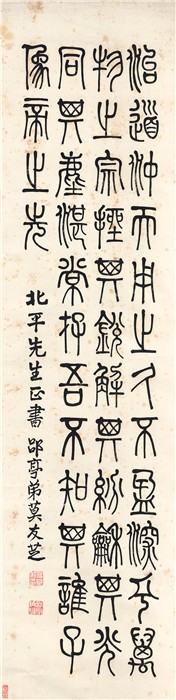 治道沖而用之久不盈深乎萬
物之宗挫其銳解其紛龢其光
同其塵湛常存吾不知其誰子
象帝之先
北平先生正書 郘亭弟莫友芝